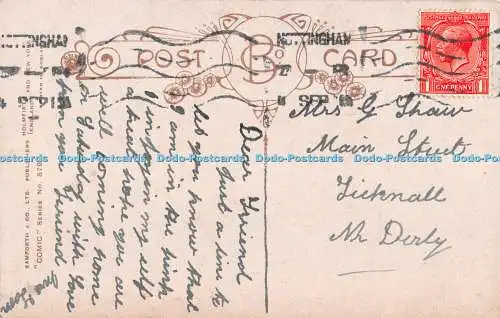 NOTTINGHAM
NOTTINGHAM
POST CARD
ONE PENNY
SEP
SEP
BAMFORTH & CO., LTD. PUBLISHERS HOLMFIRTH
"COMIC" SERIES No.
Dear Friend
Just a line to
let you know that
I am in the pink
I enjoyin my self
a treat hope you are
well coming home
on Saturday with love
from your friend
Mrs G Shaw
Main Street
Ticknall
Nr Derby
Dodo-Postcards Dodo-Postcards Dodo-Postcards Dodo-Postcards Dodo-Postcards